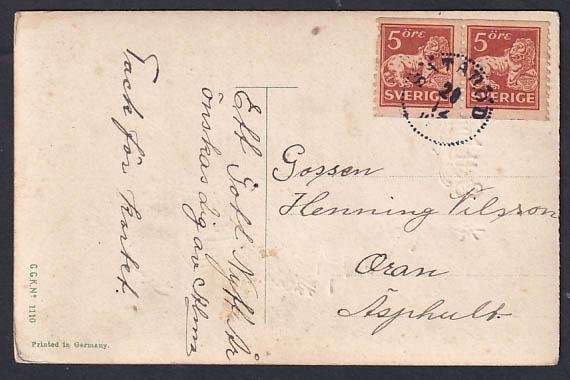 Tack för kortet.
Ett Godt Nytt År
önskas Dig av Alma
5 ÖRE 5 ÖRE
SVERIGE SVERIGE
28
12
Gossen
Henning Nilsson
Oran
Äsphult
G.G.K.Nº 1110
Printed in Germany.